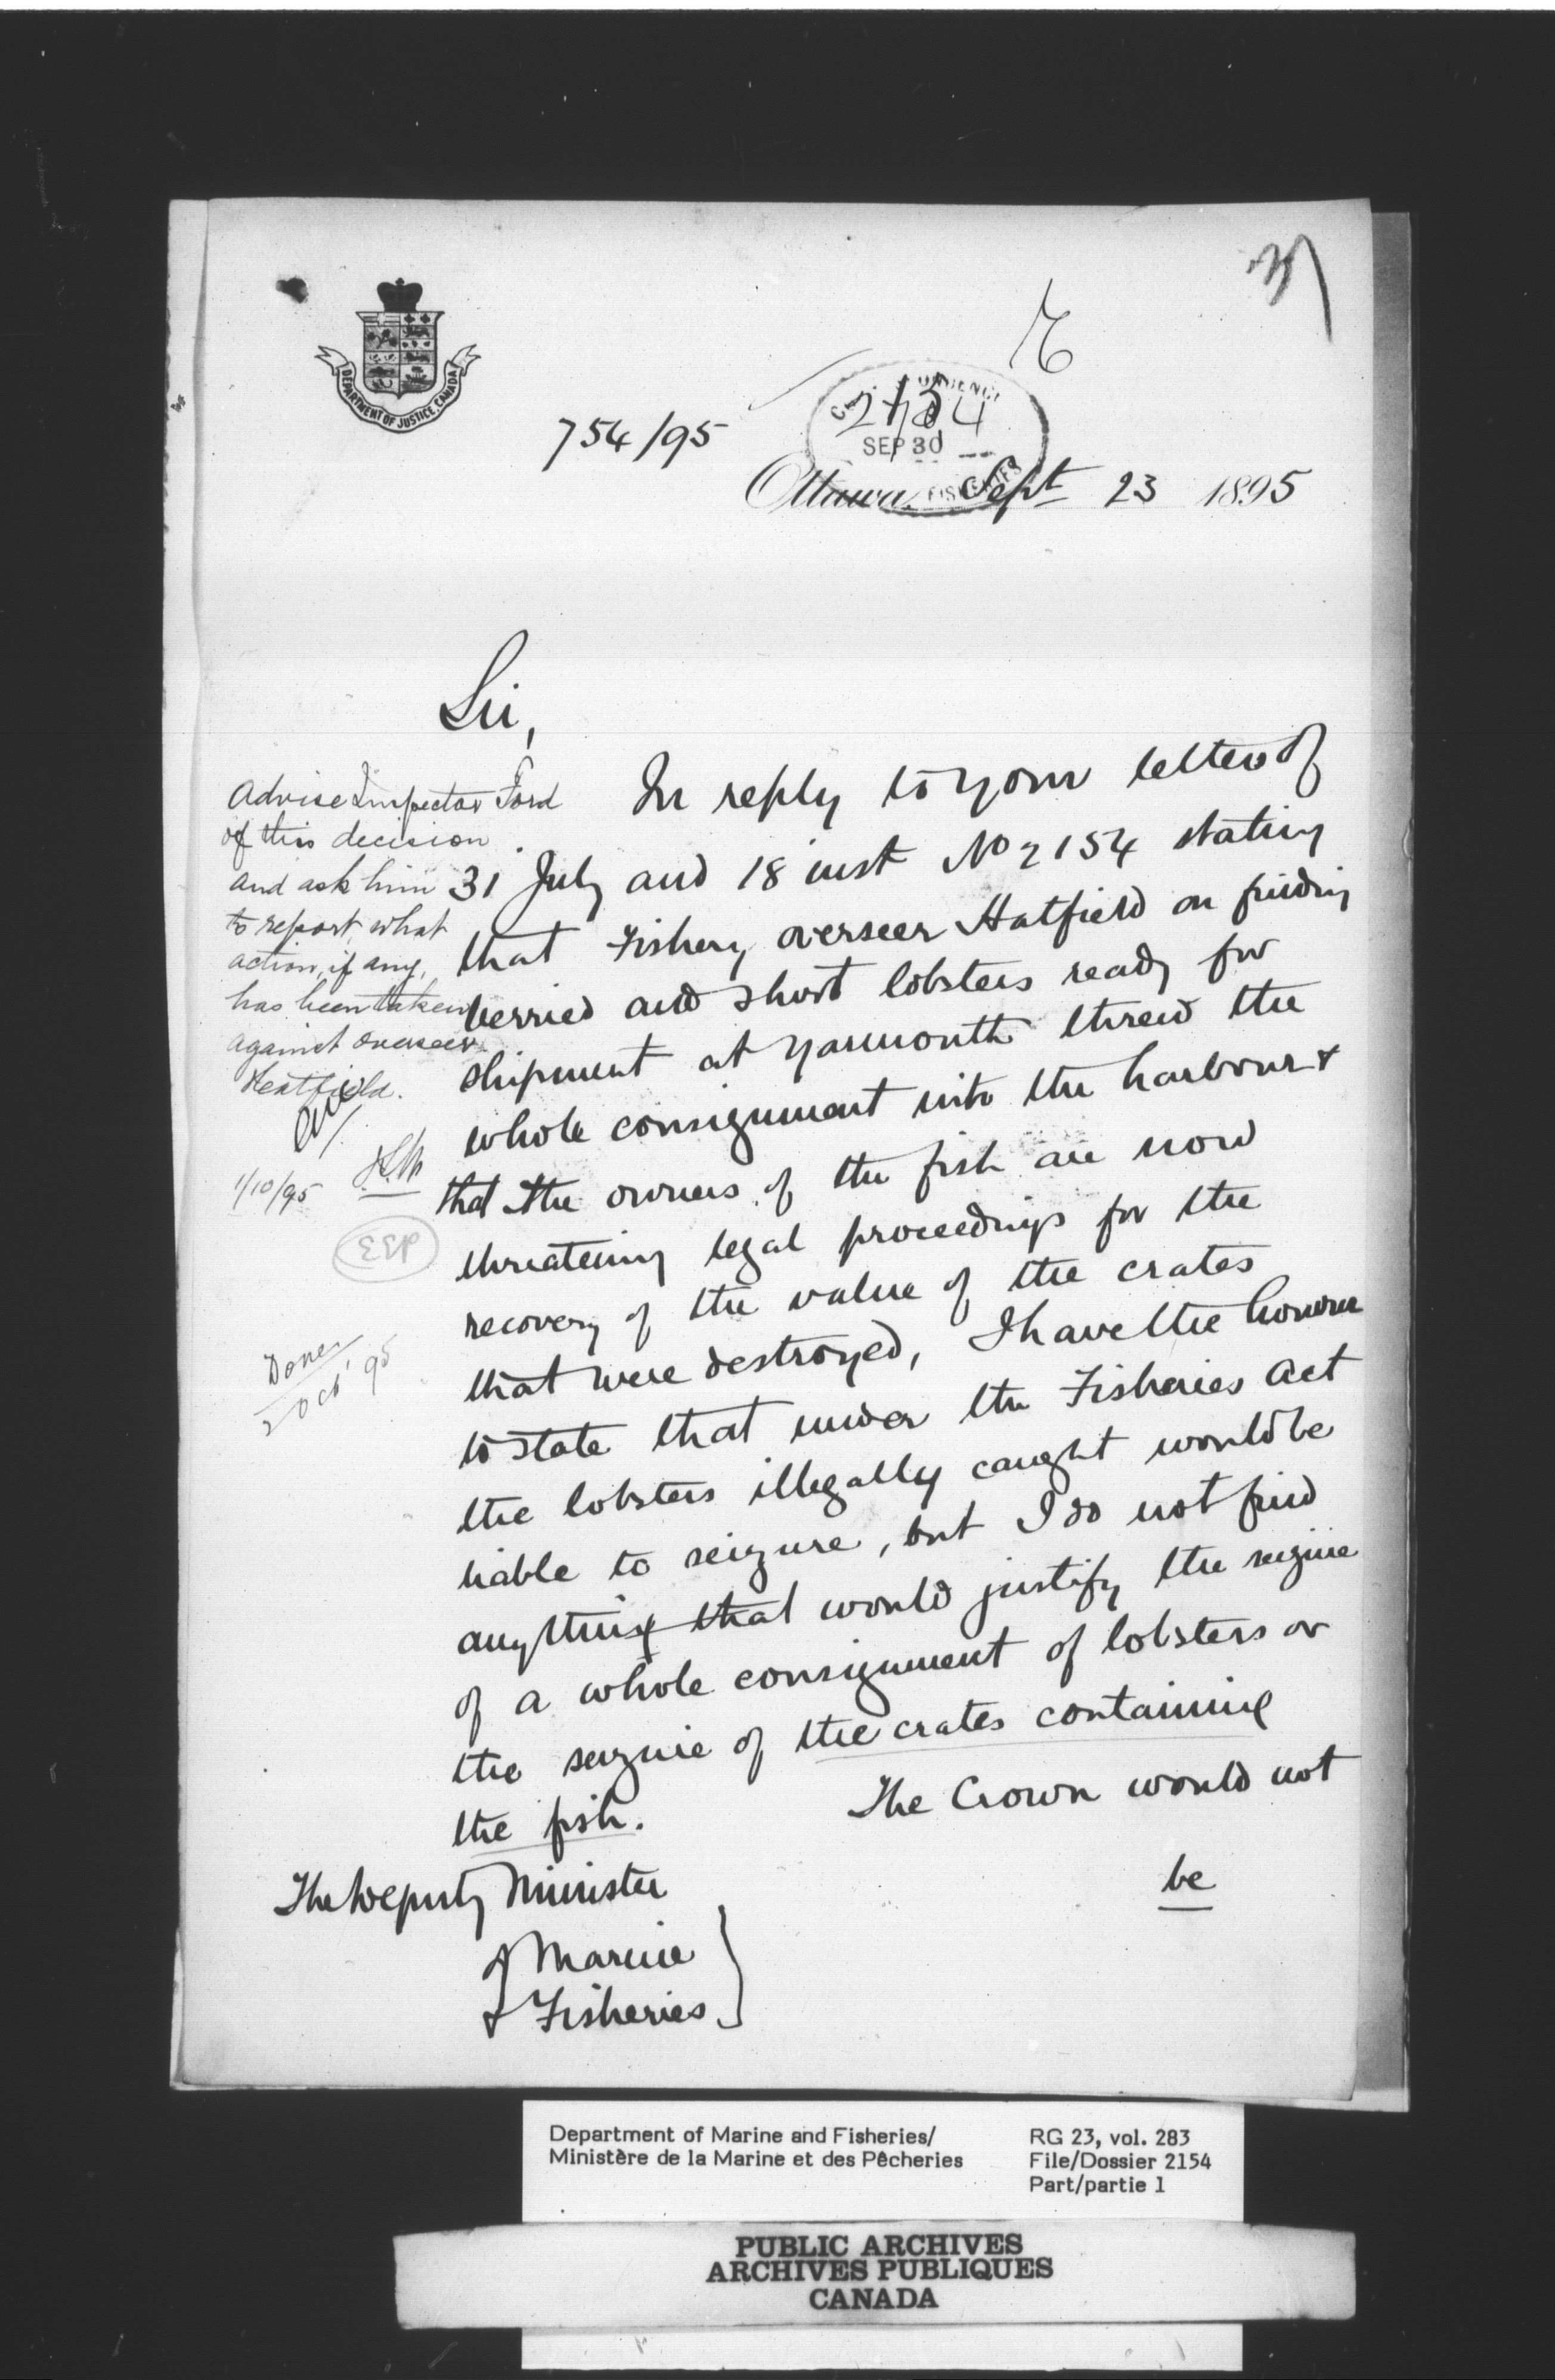 37
E
DEPARTMENT OF JUSTICE, CANADA
754/95
2154
SEP 30
FISHERIES
Ottawa, Sept 23 1895
Sir,
In reply to your letter of
31 July and 18 inst No 2154 stating
that Fishery overseer Hatfield on finding
berried and short lobsters ready for
shipment at Yarmouth threw the
whole consignment into the harbour &
that the owners of the fish are now
threatening legal proceedings for the
recovery of the value of the crates
that were destroyed, I have the honour
to state that under the Fisheries Act
the lobsters illegally caught would be
liable to seizure, but I do not find
anything that would justify the seizure
of a whole consignment of lobsters or
the seizure of the crates containing
the fish. The Crown would not
be
The Deputy Minister
of Marine
& Fisheries
Advise Inspector Ford
of this decision
and ask him
to report what
action, if any,
has been taken
against overseer
Hatfield.
1/10/95
Done
2 Oct' 95
Department of Marine and Fisheries/
Ministère de la Marine et des Pêcheries
RG 23, vol. 283
File/Dossier 2154
Part/partie 1
PUBLIC ARCHIVES
ARCHIVES PUBLIQUES
CANADA